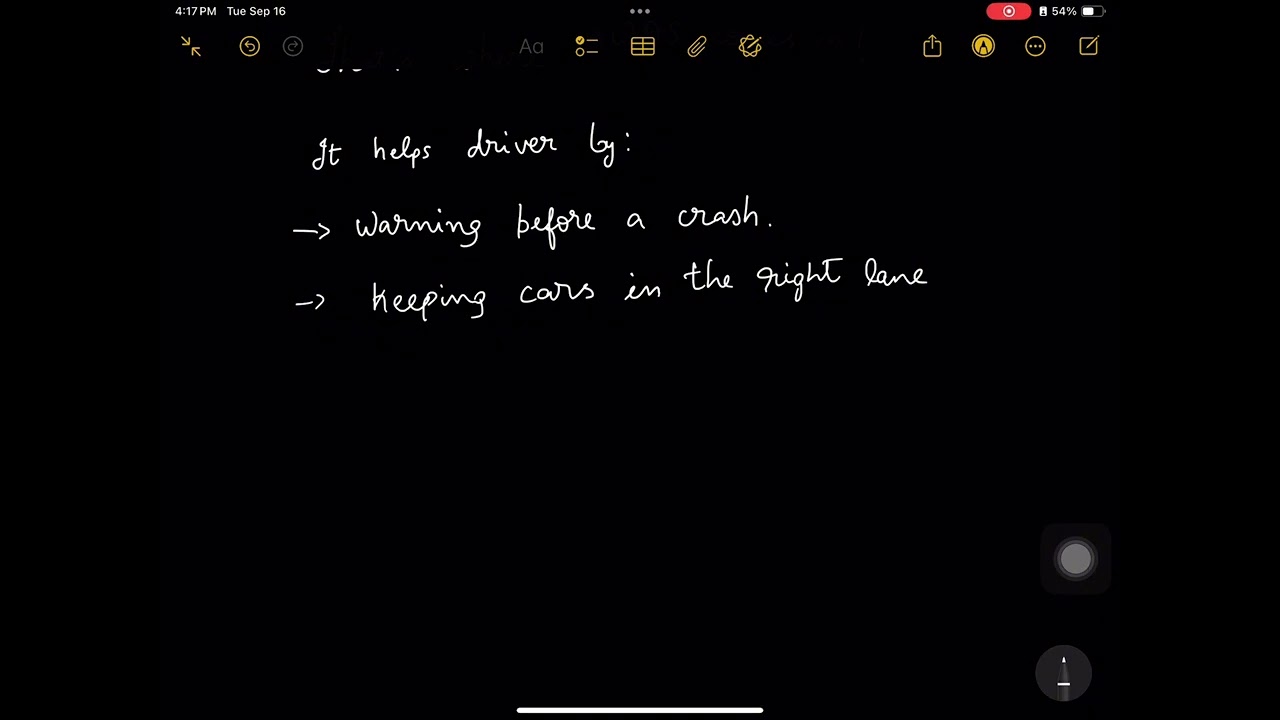 4:17 PM Tue Sep 16
54%
Aa
It helps driver by:
→ Warning before a crash.
→ keeping cars in the right lane